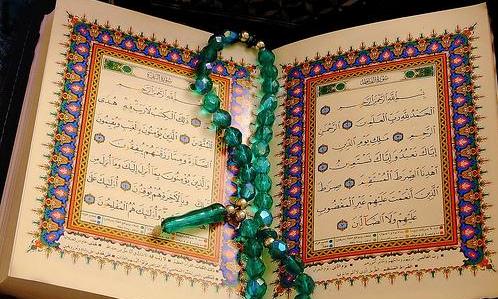 سورة الفاتحة
بسم الله الرحمن الرحيم
الحمد لله رب العلمين الرحمن
الرحيم ملك يوم الدين
إياك نعبد وإياك نستعين
اهدنا الصراط المستقيم صراط
الذين أنعمت عليهم غير المغضوب
عليهم ولا الضالين
سورة البقرة
بسم الله الرحمن الرحيم
ذلك الكتب لا ريب فيه هدى
للمتقين الذين يؤمنون بالغيب ويقيمون
الصلوة ومما رزقنهم ينفقون
والذين يؤمنون بما أنزل إليك وما أنزل من
قبلك وبالآخرة هم يوقنون أولئك على
وأولئك هم المفلحون